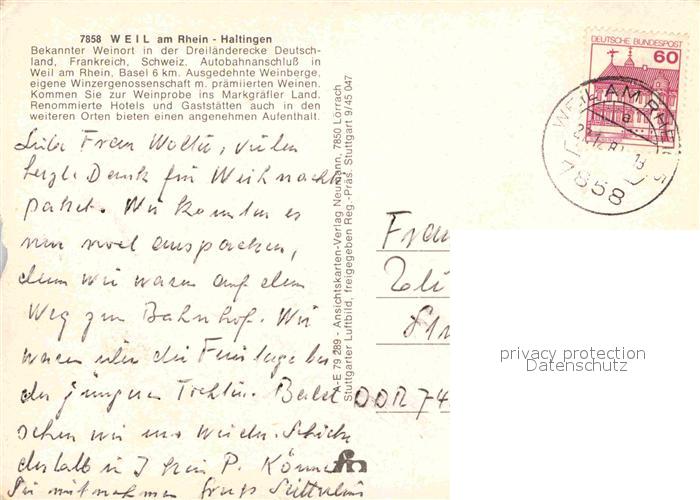 7858 WEIL am Rhein - Haltingen
Bekannter Weinort in der Dreiländerecke Deutsch-
land, Frankreich, Schweiz. Autobahnanschluß in
Weil am Rhein, Basel 6 km. Ausgedehnte Weinberge,
eigene Winzergenossenschaft m. prämiierten Weinen.
Kommen Sie zur Weinprobe ins Markgräfler Land.
Renommierte Hotels und Gaststätten auch in den
weiteren Orten bieten einen angenehmen Aufenthalt.
Liebe Frau, vielen
herzl. Dank für Weihnachts
paket. Wir konnten es
nur noch auspacken,
denn wir waren auf dem
Weg zum Bahnhof. Wir
waren über die Feiertage bei
der jüngeren Tochter. Bald
sehen wir uns wieder. Schicke
deshalb P.
Sie mitnehmen
A-E 79 289 - Ansichtskarten-Verlag Neumann, 7850 Lörrach
Stuttgarter Luftbild, freigegeben Reg.-Präs. Stuttgart 9/45 047
DEUTSCHE BUNDESPOST
60
WEIL AM RHEIN
a
7858
Frau
DDR 74
privacy protection
Datenschutz